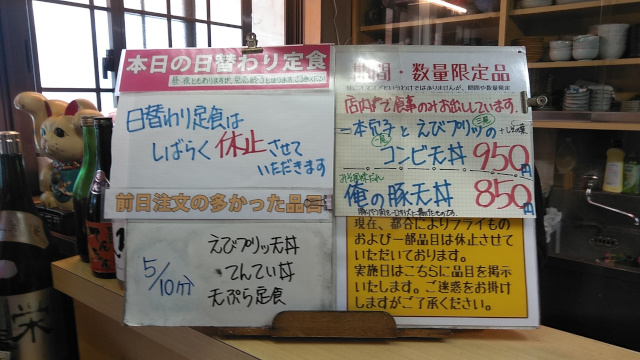 本日の日替わり定食
日替わり定食は
しばらく休止させて
いただきます
前日注文の多かった品
5/10分
えびプリッ天丼
てんてい丼
天ぷら定食
期間・数量限定品
店内で食事のみお出ししています。
一本穴子とえびプリッの
コンビ天丼 950円
俺の豚天丼 850円
現在、都合によりフライもの
および一部品目は休止させて
いただいております。
実施日はこちらに品目を掲示
いたします。ご迷惑をお掛け
しますがご了承ください。
栄